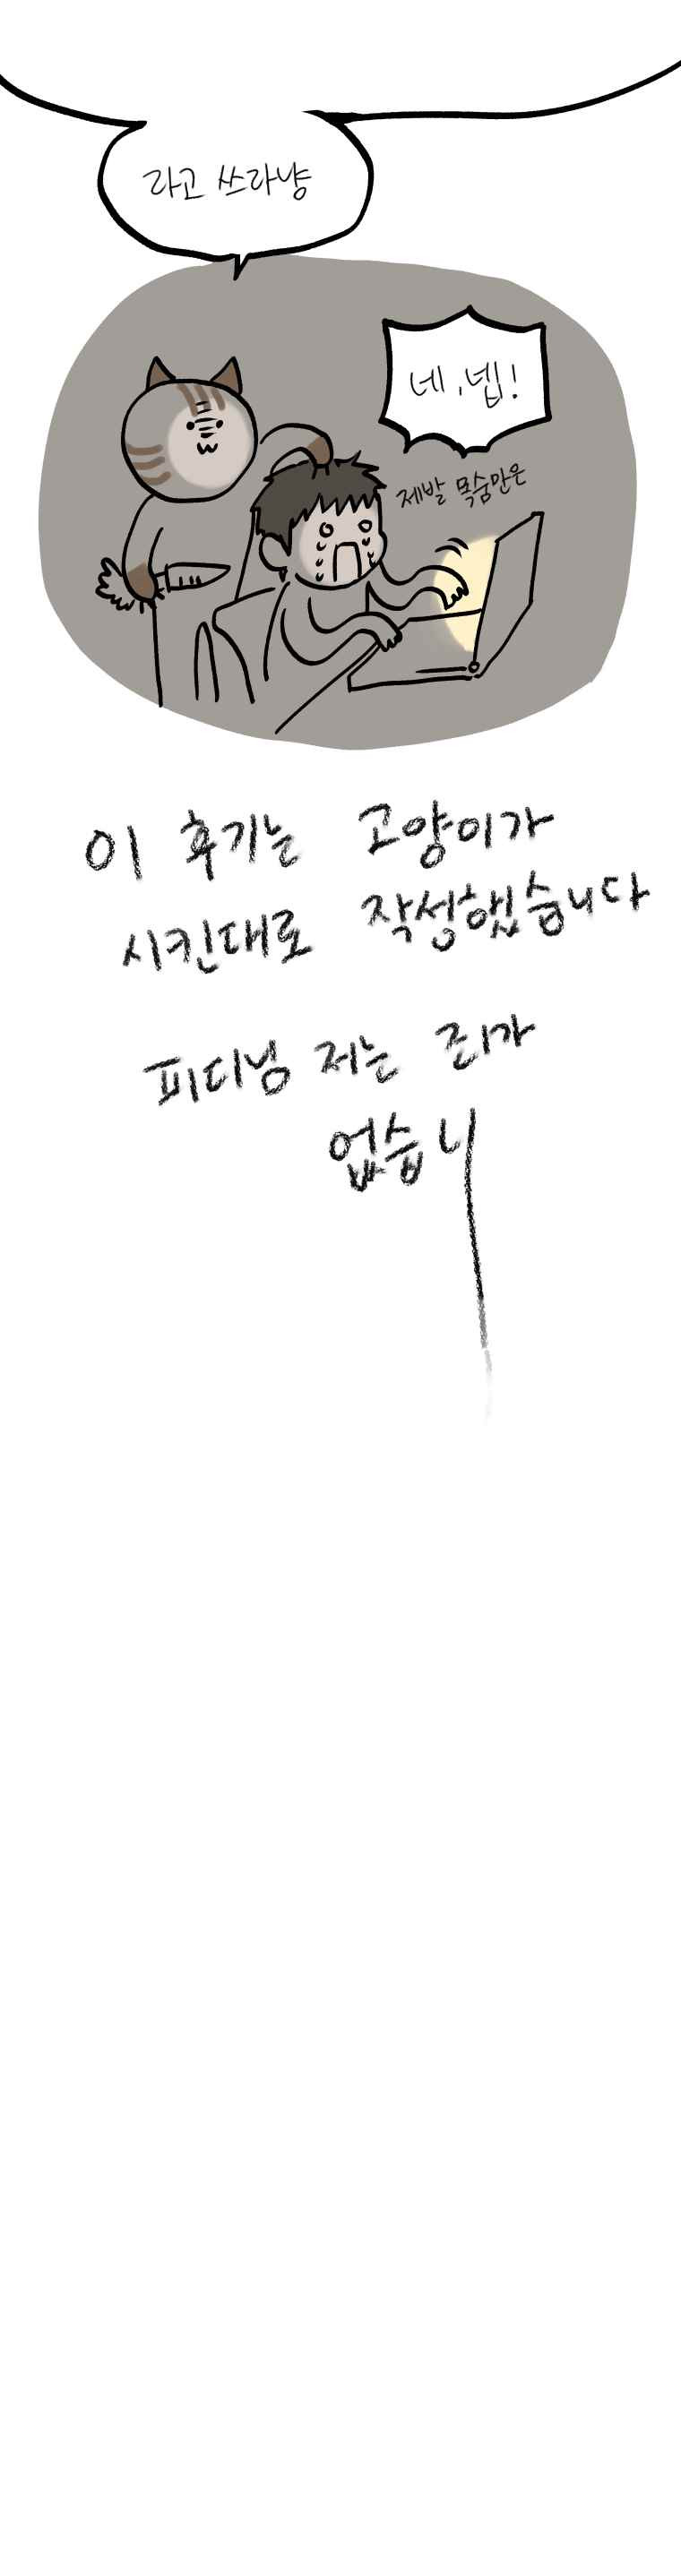 라고 쓰라냥
네, 넵!
제발 목숨만은
이 후기는 고양이가
시킨대로 작성했습니다
피디님 저는 죄가
없습니